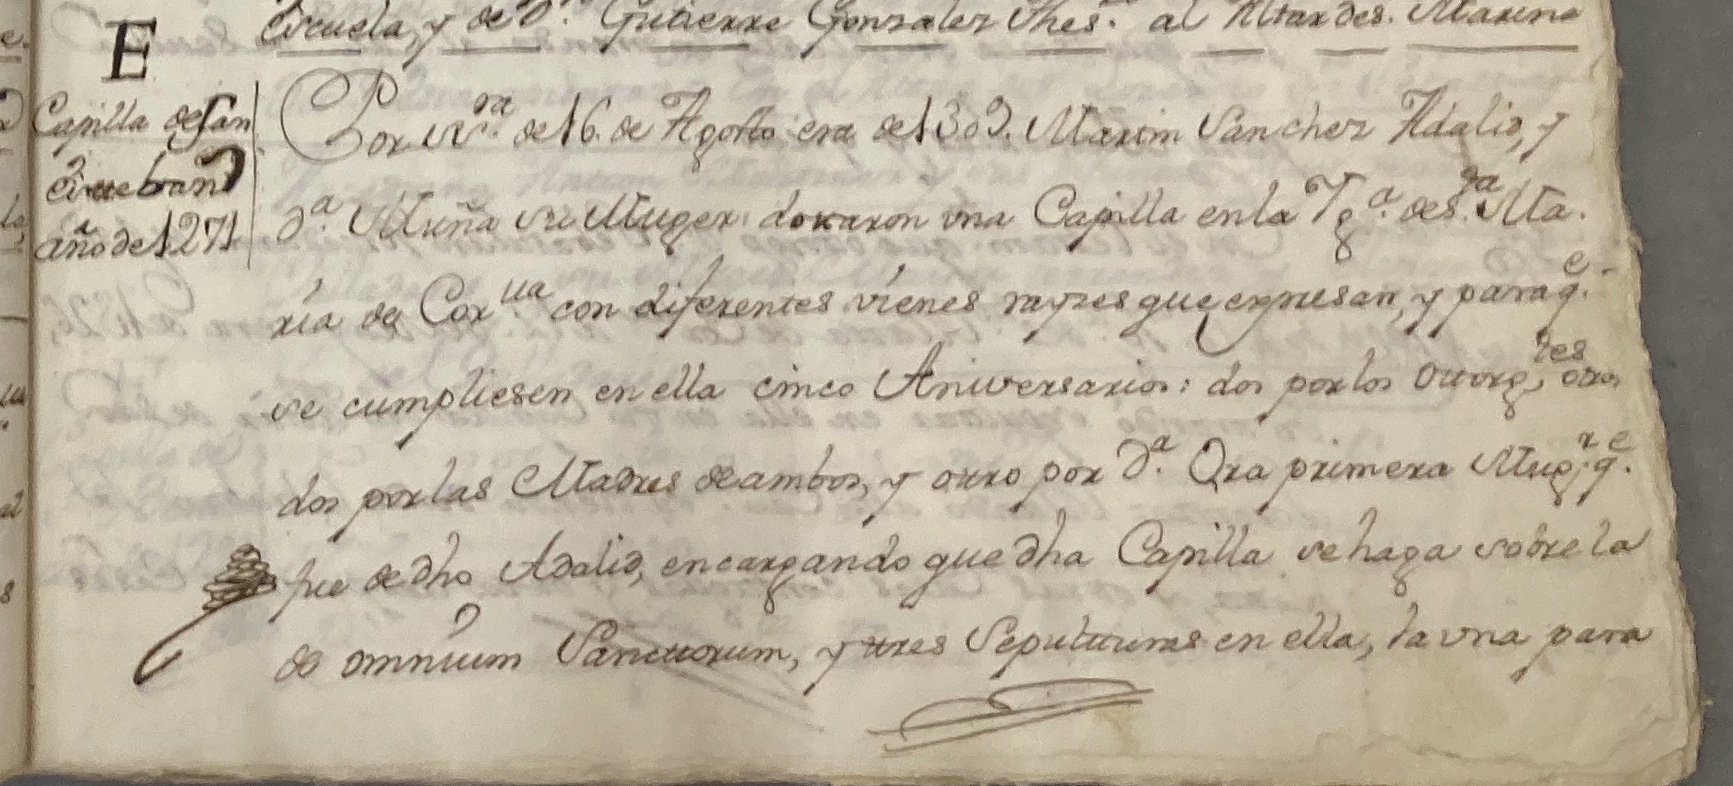 Escuela, y de Dn. Gutierre Gonzalez Thes.º al Altar de S. Marina
E
Capilla de San
Estteban
año de 1271
Por Scr.ra de 16 de Agosto era de 1309. Martin Sanchez Adalid, y
D.ª Muña su Muger dotaron una Capilla en la Yg.ª de S.ta Ma
ria de Cor.ua con diferentes vienes rayzes que expresan, y para q.e
se cumpliesen en ella cinco Aniversarios: dos por los Otorg.tes, otros
dos por las Madres de ambos, y otro por D.ª Ora primera Mug.r q.e
fue de dho Adalid, encargando que dha Capilla se haga sobre la
de omnium Sanctorum, y tres Sepulturas en ella, la una para